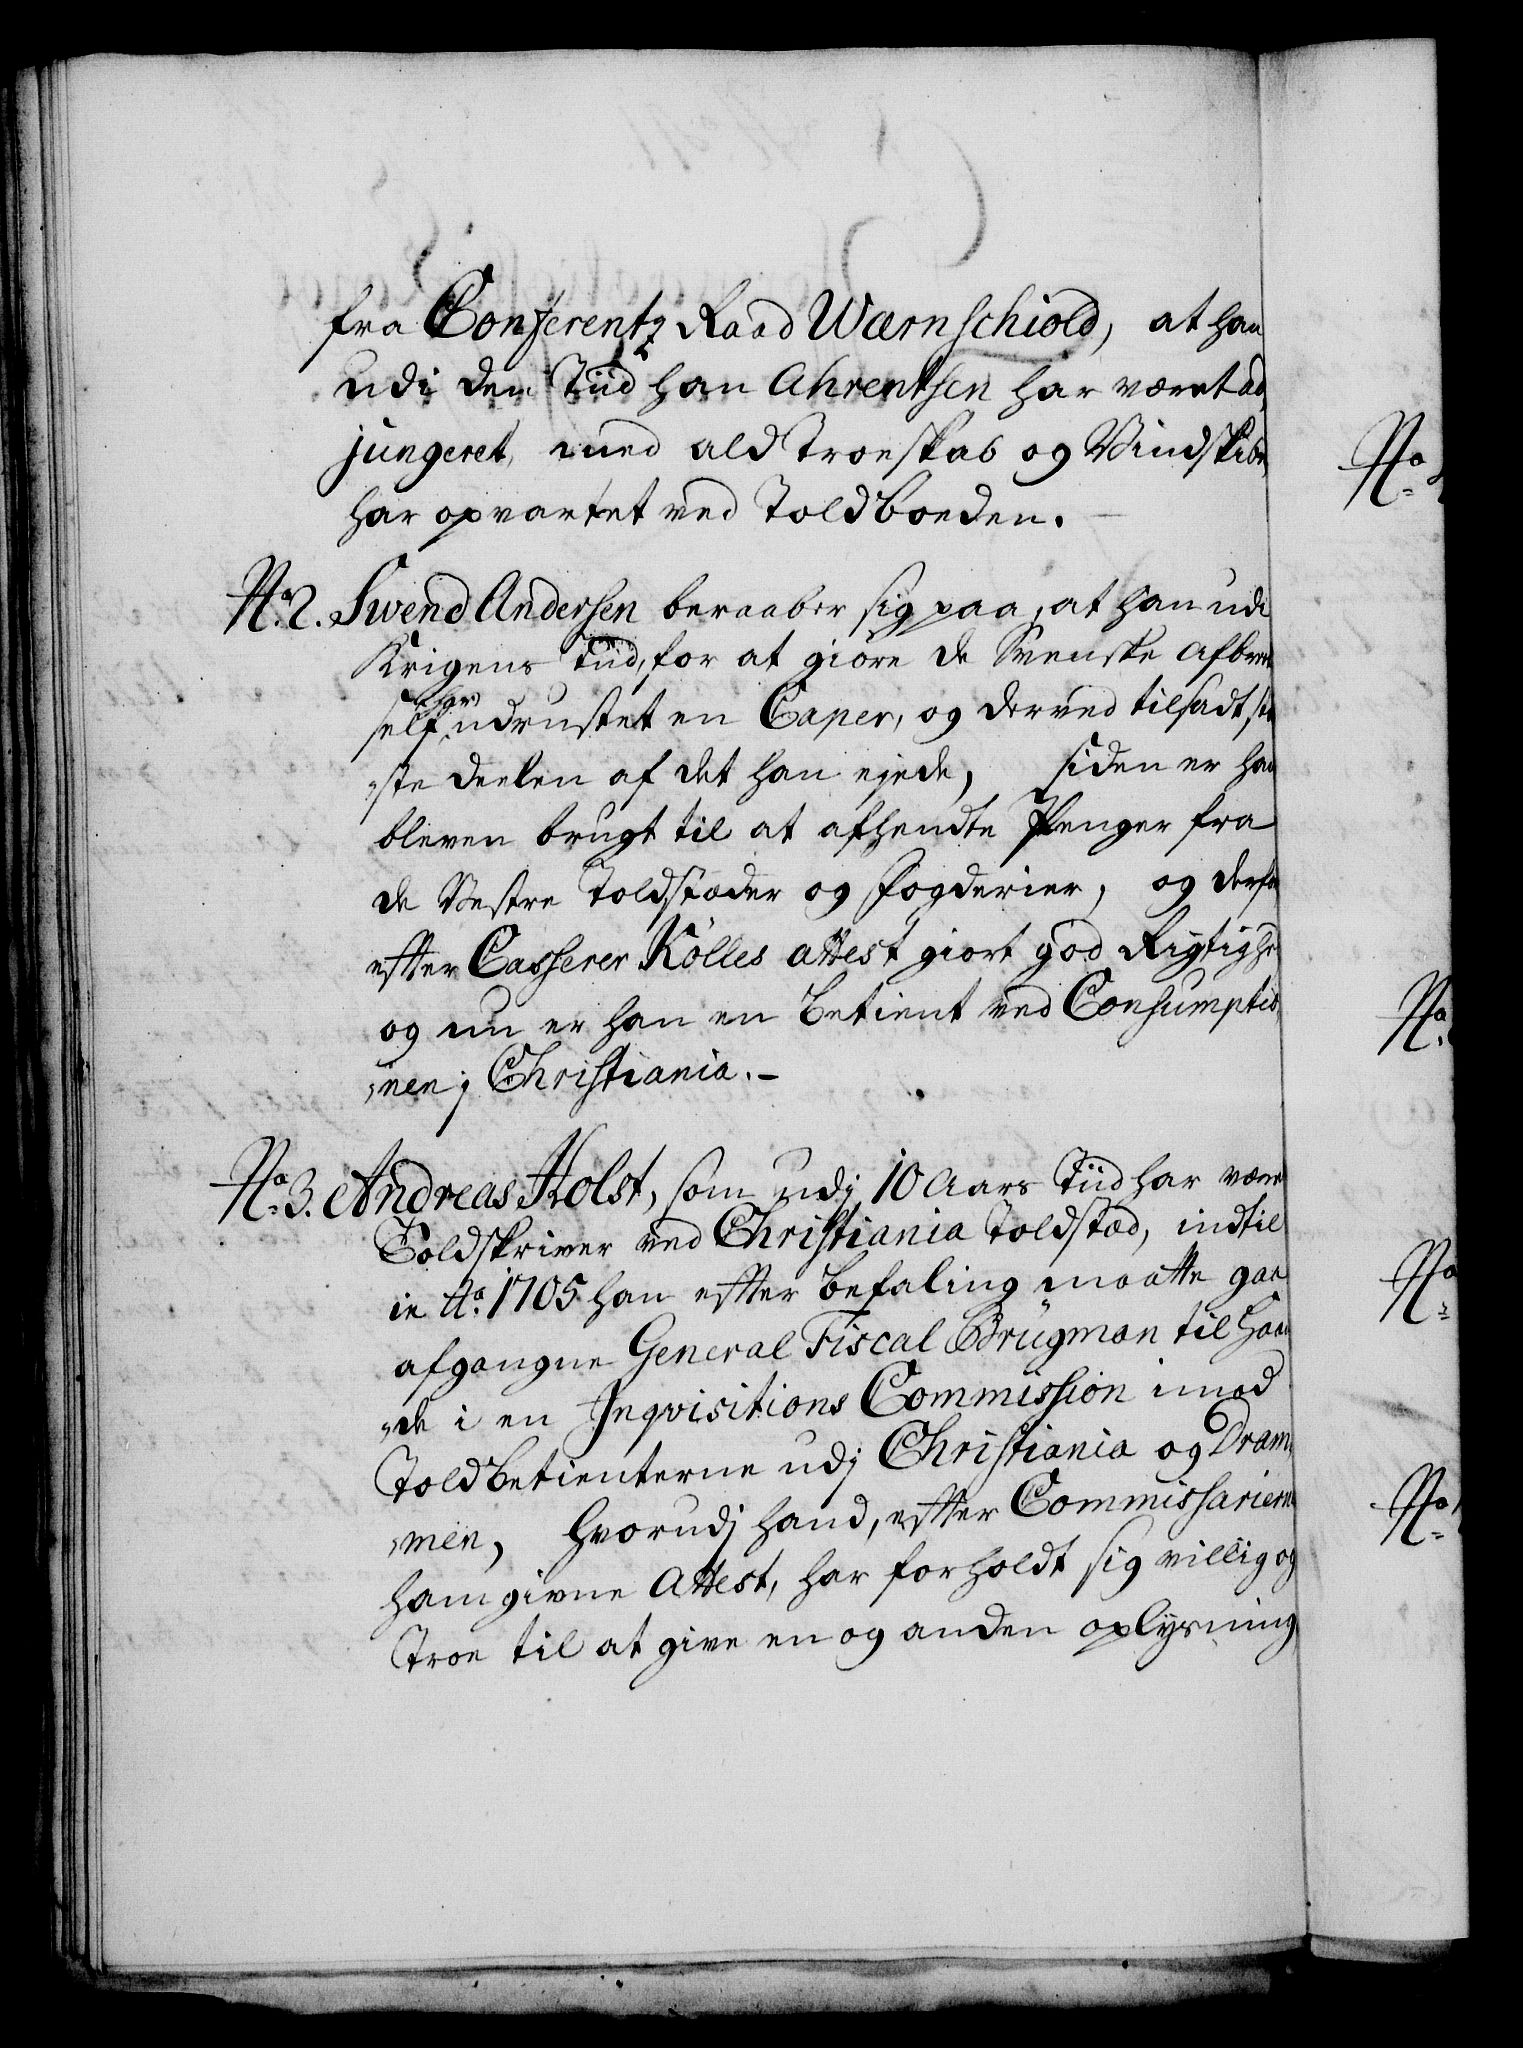 fra Conferentz Raad Wærnschiold, at han
udi den Tiid han Ahrentsen har været ad,
jungeret, med ald Troeskab og Vindskibe,
har opvartet ved Toldboeden.
No. 2. Swend Andersen beraaber sig paa, at han udi
Krigens Tiid, for at giöre de Svenske Afbræ
self har udrustet en Caper, og derved tilsadt stö
ste deelen af det han ejede, siden er han
bleven brugt til at afhendte Penger fra
de Vestre Toldstæder og Fogderier, og derfor
efter Casserer Kölles attest giort god Rigtighe
og nu er han en betient ved Consumptio,
,nen j Christiania.-
No. 3. Andreas Holst, som udj 10 Aars Tiid har været
Toldskriver ved Christiania Toldstæd, indtil
in Ao. 1705 han efter befaling maatte gaae
afgangne General Fiscal Brügman til Haan
,de i en Inqvisitions Commission imod
Toldbetienterne udj Christiania og Dram,
,men, hvorudj hand, efter Commissarierne
ham givne Attest, har forholdt sig villig og
Troe til at give en og anden oplysning
No.
No.
No.
No.